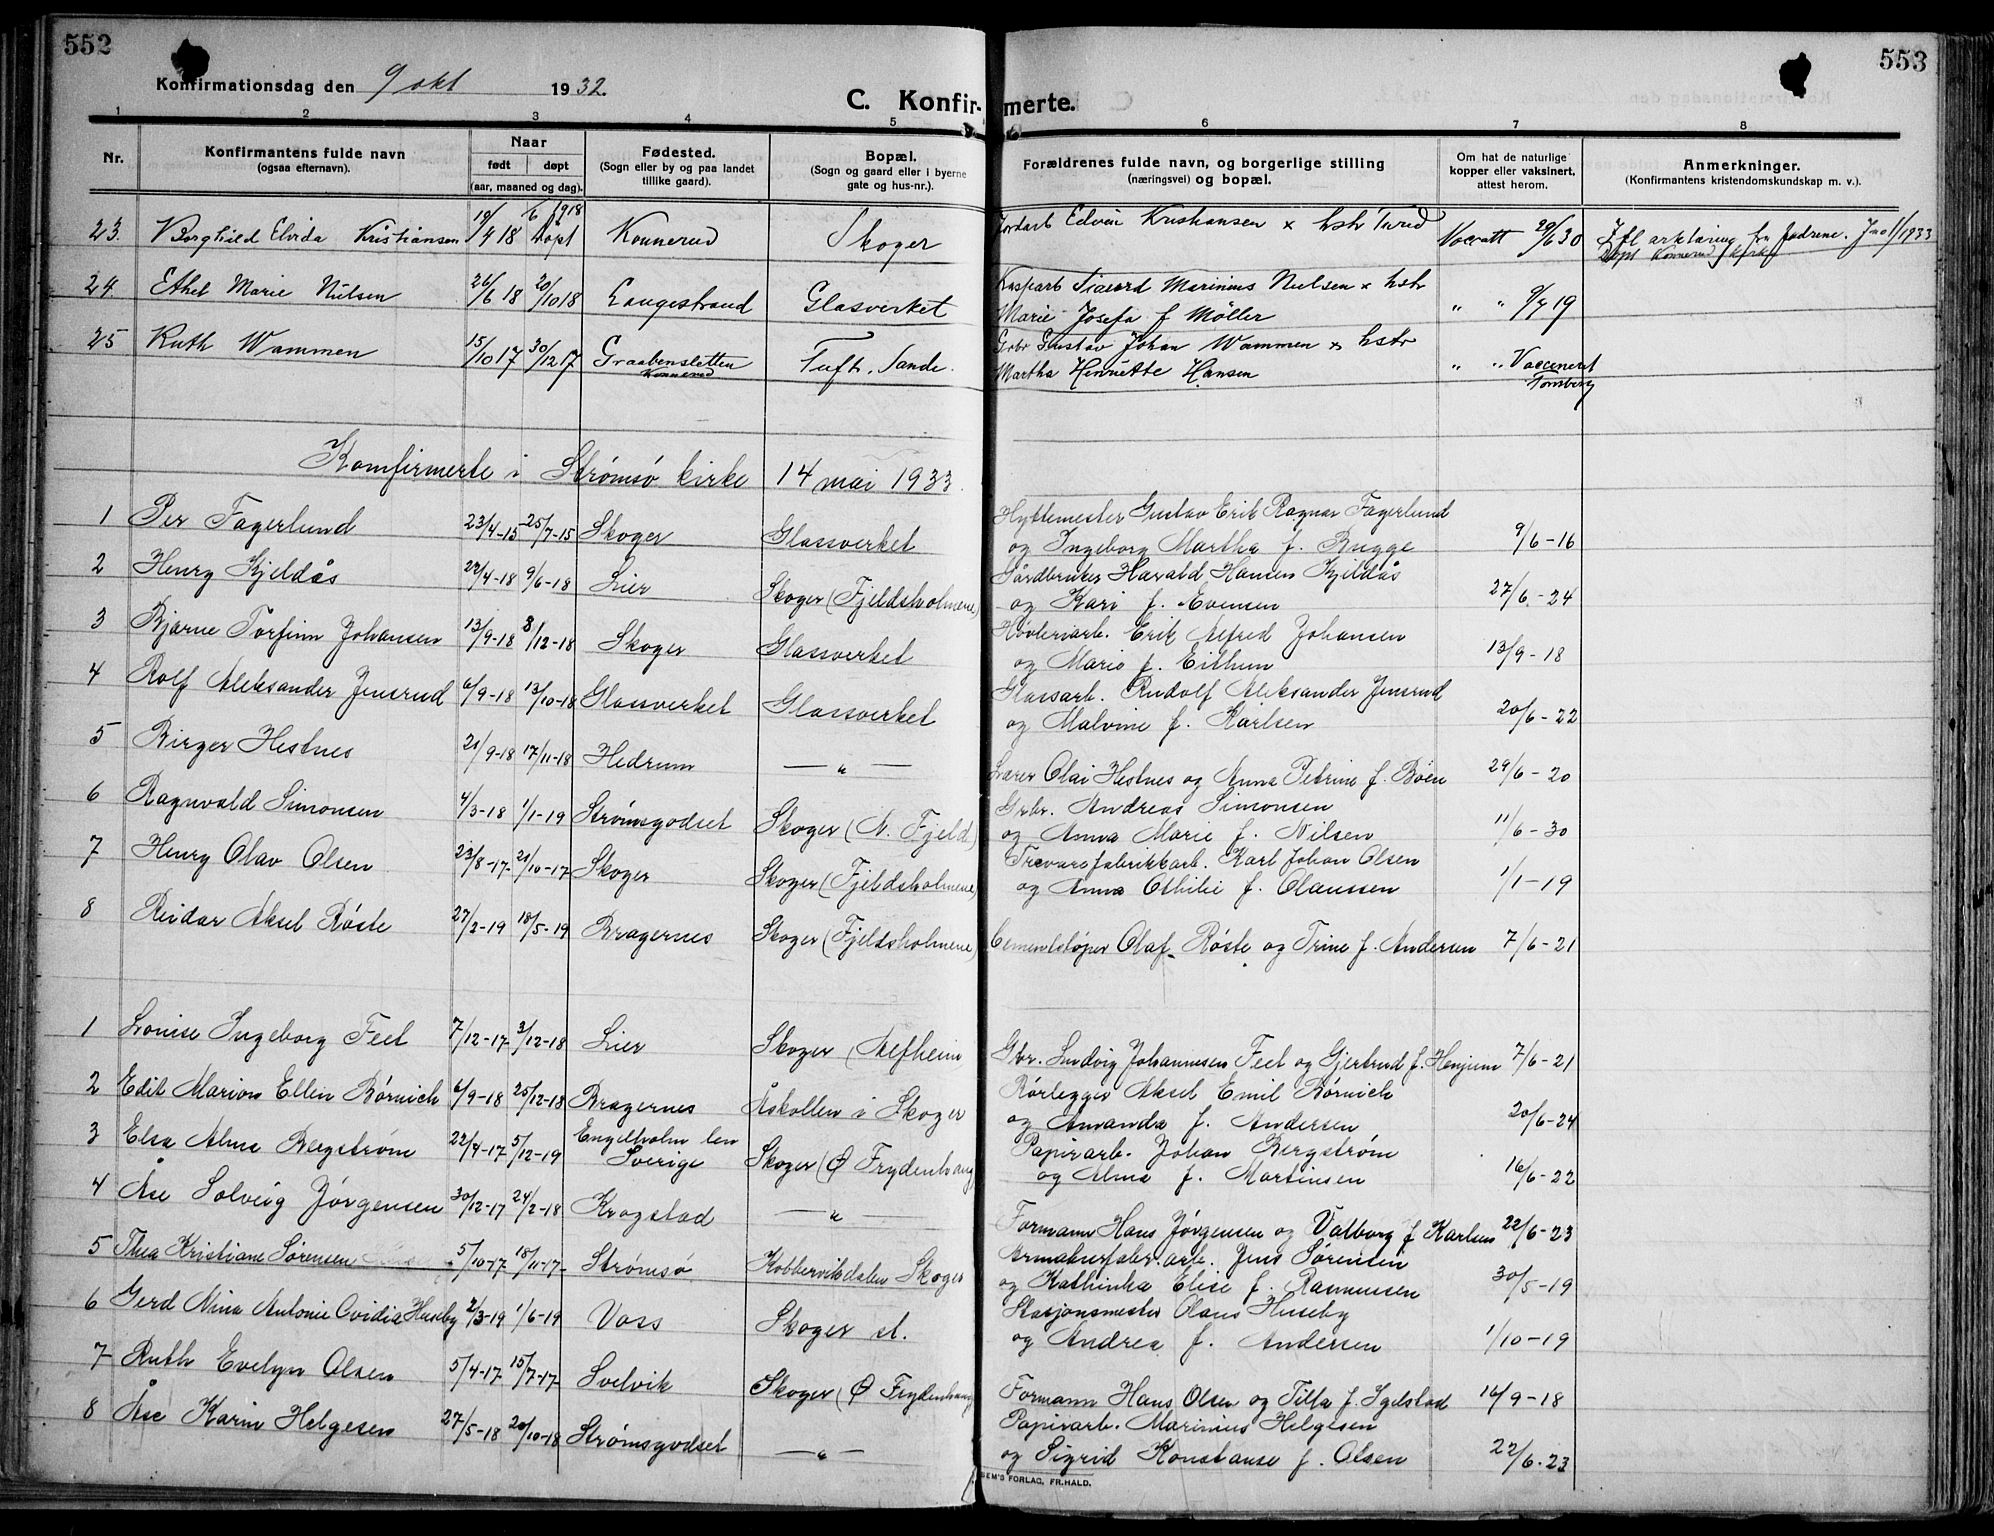 552
553
Konfirmationsdag den 9 okt 1932.
C. Konfirmerte.
1 2 3 4 5 6 7 8
Nr.
Konfirmantens fulde navn
(ogsaa efternavn).
Naar
født døpt
(aar, maaned og dag).
Fødested.
(Sogn eller by og paa landet
tillike gaard).
Bopæl.
(Sogn og gaard eller i byerne
gate og hus-nr.).
Forældrenes fulde navn, og borgerlige stilling
(næringsvei) og bopæl.
Om hat de naturlige
kopper eller vaksinert,
attest herom.
Anmerkninger.
(Konfirmantens kristendomskundskap m. v.).
23. Borghild Elvida Kristiansen 19/4 18 6/ 1918 Døpt Konnerud Skoger Jordarb Edvin Kristiansen x hstr Turid Vacratt 29/6 30
24. Ethel Marie Nilsen 26/6 18 20/10 18 Langestrand Glasverket Marinius Nielsen x hstr
Marie Josefa f Møller " " 9/7 19
25 Ruth Wammen 15/10 17 30/12 17 Graabensletten
Konnerud Tuft. Sande. Grbr Gustav Johan Wammen x hstr
Martha Henriette Hansen " " Vaccineret
Tønsberg
Konfirmerte i Strømsø kirke 14 mai 1933.
1 Per Fagerlund 23/4-15 25/7-15 Skoger Glassverket Hyttemester Gustav Erik Ragnar Fagerlund
og Ingeborg Martha f. Bugge 9/6-16
2 Henry Kjeldås 29/4-18 9/6-18 Lier Skoger (Fjeldsholmene) Gårdbruker Harald Hansen Kjeldås
og Kari f. Evensen 27/6-24
3 Bjarne Torfinn Johansen 13/9-18 8/12-18 Skoger Glassverket Høvleriarb. Erik Alfred Johansen
og Marie f. Eithun 13/9-18
4 Rolf Aleksander Jensrud 6/9-18 13/10-18 Glassverket Glassverket Glassarb. Rudolf Aleksander Jensrud
og Malvine f. Karlsen 20/6-22
5 Birger Hestnes 21/9-18 17/11-18 Hedrum — " — Lærer Olai Hestnes og Anna Petrine f. Bøen 29/6-20
6 Ragnvald Simonsen 4/3-18 1/1-19 Strømsgodset Skoger (N. Fjeld) Grbr. Andreas Simonsen
og Anna Marie f. Nilsen 11/6-30
7 Henry Olav Olsen 23/8-17 21/10-17 Skoger Skoger (Fjeldsholmene) Trevarefabrikkarb. Karl Johan Olsen
og Anna Othilie f. Olaussen 1/1-19
8 Reidar Aksel Røste 27/2-19 18/5-19 Bragernes Skoger (Fjeldsholmene) Cementstøper Olaf Røste og Trine f. Andersen 7/6-21
1 Louise Ingeborg Feet 7/12-17 3/12-18 Lier Skoger (Alfheim) Gbr. Ludvig Johannesen Feet og Gjertrud f. Henjum 7/6-21
2 Edit Marion Ellen Børnich 6/9-18 25/12-18 Bragernes Åskollen i Skoger Rørlegger Aksel Emil Børnich
og Amanda f. Andersen 20/6-24
3 Elsa Alma Bergstrøm 22/4-17 5/12-19 Engelholm len
Sverige Skoger (Ø Frydenhaug Papirarb. Johan Bergstrøm
og Alma f. Martinsen 16/6-22
4 Åse Solveig Jørgensen 30/12-17 24/2-18 Krogstad — " — Formann Hans Jørgensen og Valborg f. Karlsen 22/6-23
5 Thea Kristiane Sørensen 5/10-17 18/11-17 Strømsø Kobbervikdalen Skoger Armaturfabr.arb. Jens Sørensen
og Kathinka Elise f. Rasmussen 30/5-19
6 Gerd Nina Antonie Ovidia Huseby 2/3-19 1/6-19 Voss Skoger st. Stasjonsmester Olaus Huseby
og Andrea f. Andersen 1/10-19
7 Ruth Evelyn Olsen 5/4-17 15/7-17 Svelvik Skoger (Ø Frydenhaug Formann Hans Olsen og Tilla f. Igelstad 16/9-18
8 Åse Karin Helgesen 27/5-18 20/10-18 Strømsgodset — " — Papirarb. Marinius Helgesen
og Sigrid Konstanse f. Olsen 22/6-23
SEM'S FORLAG, FR.HALD.